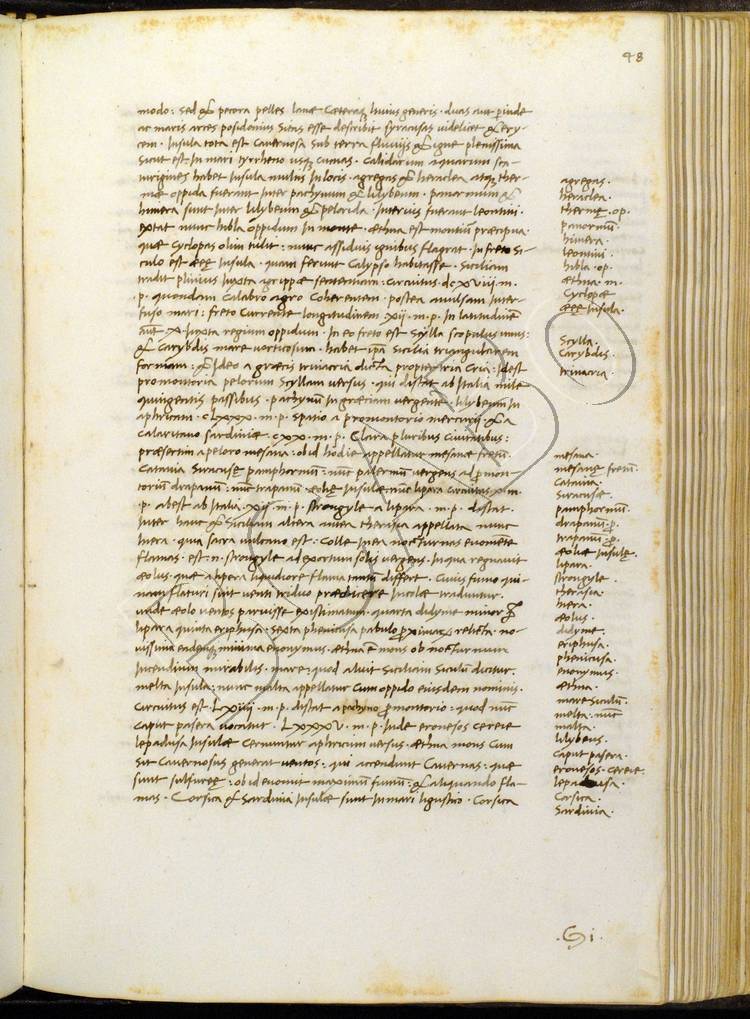 48
modo: sed & pecora pelles lanæ cæteraq; huius generis. duas aut ꝑinde
ac maris arces posidonius sitas esse describit syracusas videlicet & ery-
cem. Insula tota est cavernosa sub terra fluvijs & igne plenissima
sicut est in mari tyrrheno usq; cumas. calidarum aquarum sca-
turigines habet Insula multis in locis. agregas & heraclea atq; ther-
mæ oppida fuerunt inter pachynum & lilybeum. panormum &
himera sunt inter lilybeum & pelorida. Interius fuerunt leontini.
extat nunc hibla oppidum in monte. æthna est montium præcipua
quæ Cyclopas olim tulit: nunc assiduis ignibus flagrat. In freto si-
culo est ææę Insula. quam ferunt Calypso habitasse. Siciliam
tradit plinius iuxta agrippæ sententiam. circuitus. dcxviij. m.
.p. quondam Calabro agro Coherentem. postea avulsam inter-
fuso mari: freto currente longitudinem. xij. m. p. in latitudinem
aut. x. iuxta regium oppidum. In eo freto est Scylla scopulus unus:
& carybdis mare vorticosum. habet ipā Sicilia triangularem
formam: & ideo a græcis trinacria dicta propter tria cria: idest
promontoria pelorum Scyllam versus. qui distat ab Italia mile
quingentis passibus. pachynū in græciam vergente. lilybeum in
aphricam. clxxx. m. p. spatio a promontorio mercurij & a
calaritano sardiniæ. cxx. m. p. Clara pluribus civitatibus:
præsertim a peloro mesana: ob id hodie appellatur mesanæ fretū.
Catania siracusę pamphormū: nūc palermū vergens ad ꝑmon-
torium drapanū: nūc trapanū. æolię Insulæ nūc lipara circuitus. x. m.
.p. abest ab Italia. xij. m. p. strongyle a lipara. m. p. distat.
Inter hanc & Siciliam altera antea therasia appellata nunc
hiera. qua sacra vulcano est: colle in ea nocturnas evomente
flamas. est. n. strongyle ad exortum solis vergens. in qua regnavit
æolus. quæ a lipera liquidiore flama tantū differt. cuius fumo qui-
nam flaturi sint venti triduo prædicere incolæ traduntur.
unde æolo ventos paruisse existimatum. quarta didyme minor ꝙ̃
lipara quinta eriphusa. sexta phenicusa pabulo ꝓximaꝝ relicta. no-
vissima eademq; minima euonymus. æthna ē mons ob nocturnum
Incendium mirabilis. mare. quod aluit Siciliam Siculū dicitur.
melta Insula: nunc malta appellatur cum oppido eiusdem nominis.
circuitus est. Lxiiij. m. p. distat a pachyno ꝓmontorio: quod nūc
caput pasera vocatur. LxxxV. m. p. Inde eronesos cereie
lepadusa Insulæ cernuntur aphricum versus. æthna mons cum
sit cavernosus generat ventos: qui accendunt cavernas: quæ
sunt sulfuree: ob id evomit maximū fumū: & aliquando fla-
mas. Corsica & Sardinia Insulæ sunt in mari ligustico. Corsica
agregas.
heraclea.
thermę. op.
panormū.
himera.
leontini.
hibla. op.
æthna. m.
Cyclopæ
ææę Insula.
Scylla.
Carybdis.
trinacria.
mesana.
mesanę fretū.
catania.
Siracusæ.
pamphormū.
drapanū. p.
trapanū. p.
æoliæ Insulę.
lipara.
strongyle.
therasia.
hiera.
æolus.
didyme.
eriphusa.
phenicusa.
euonymus.
æthna.
mare siculū.
melta. nūc
malta.
lilybeus.
caput pasera.
eronesos. cereie.
lepadusa.
Corsica.
Sardinia.
.G i.